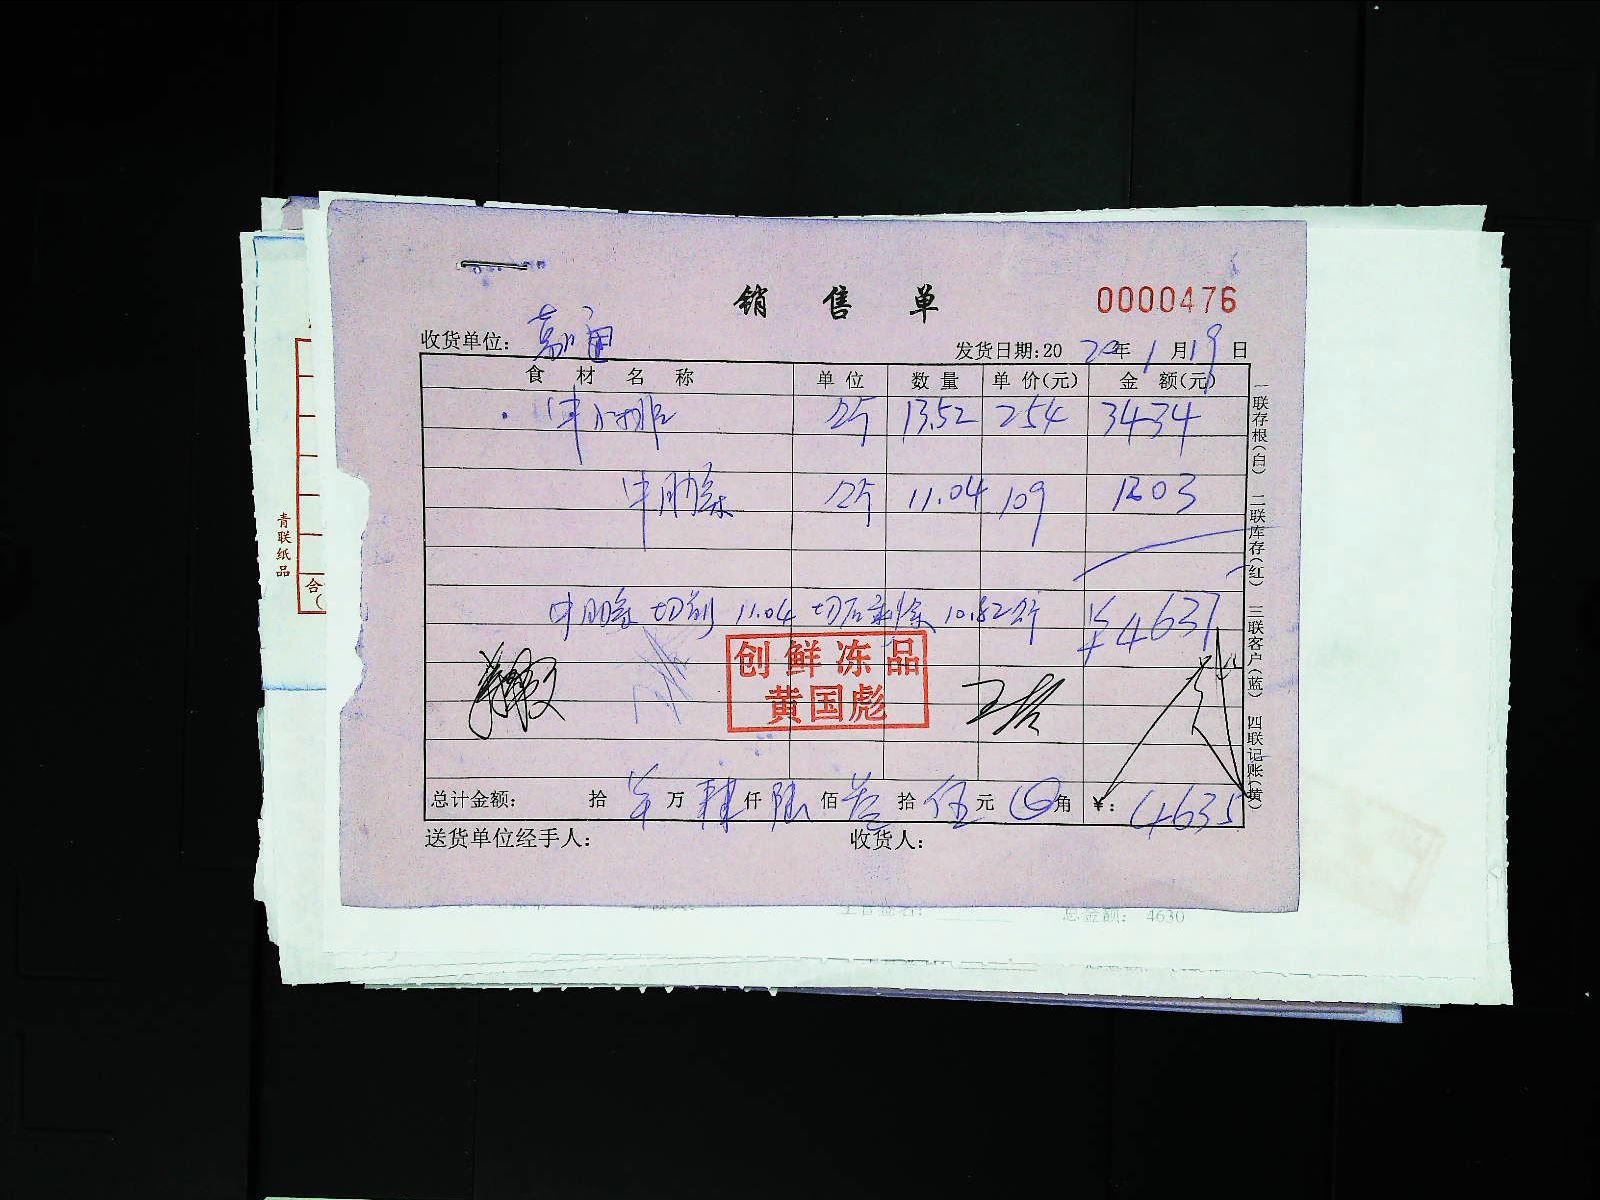 销售单
0000476
收货单位:
发货日期:2020年1月19日
食材名称 单位 数量 单价(元) 金额(元)
公斤 13.52 254 3434
牛肋条 公斤 11.04 109 1203
牛肋条 切前 11.04 切后剩余 10.82公斤 ¥4637
创鲜冻品
黄国彪
总计金额: 拾 万 肆仟 陆佰 叁拾 伍元 角 ¥: 4635
送货单位经手人: 收货人:
一联存根(白) 二联库存(红) 三联客户(蓝) 四联记账(黄)
青联纸品
合
总金额: 4630